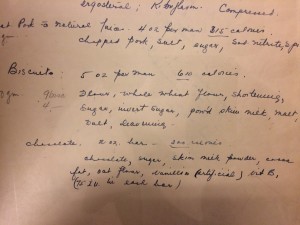 ergosterial; Riboflavin. Compressed.
at Pork to Natural Juices. 4 oz per man 315 calories.
gm chopped pork, salt, sugar, Sod nitrate,
Biscuits: 5 oz per man 610 calories.
gm Flour, whole wheat flour, shortening,
Sugar, invert sugar, powd skim milk, malt,
salt, leavening.
chocolate. 2 oz. bar —
chocolate, sugar, skim milk powder, cocoa
fat, oat flour, vanillin (artificial), vit B,
in each bar)